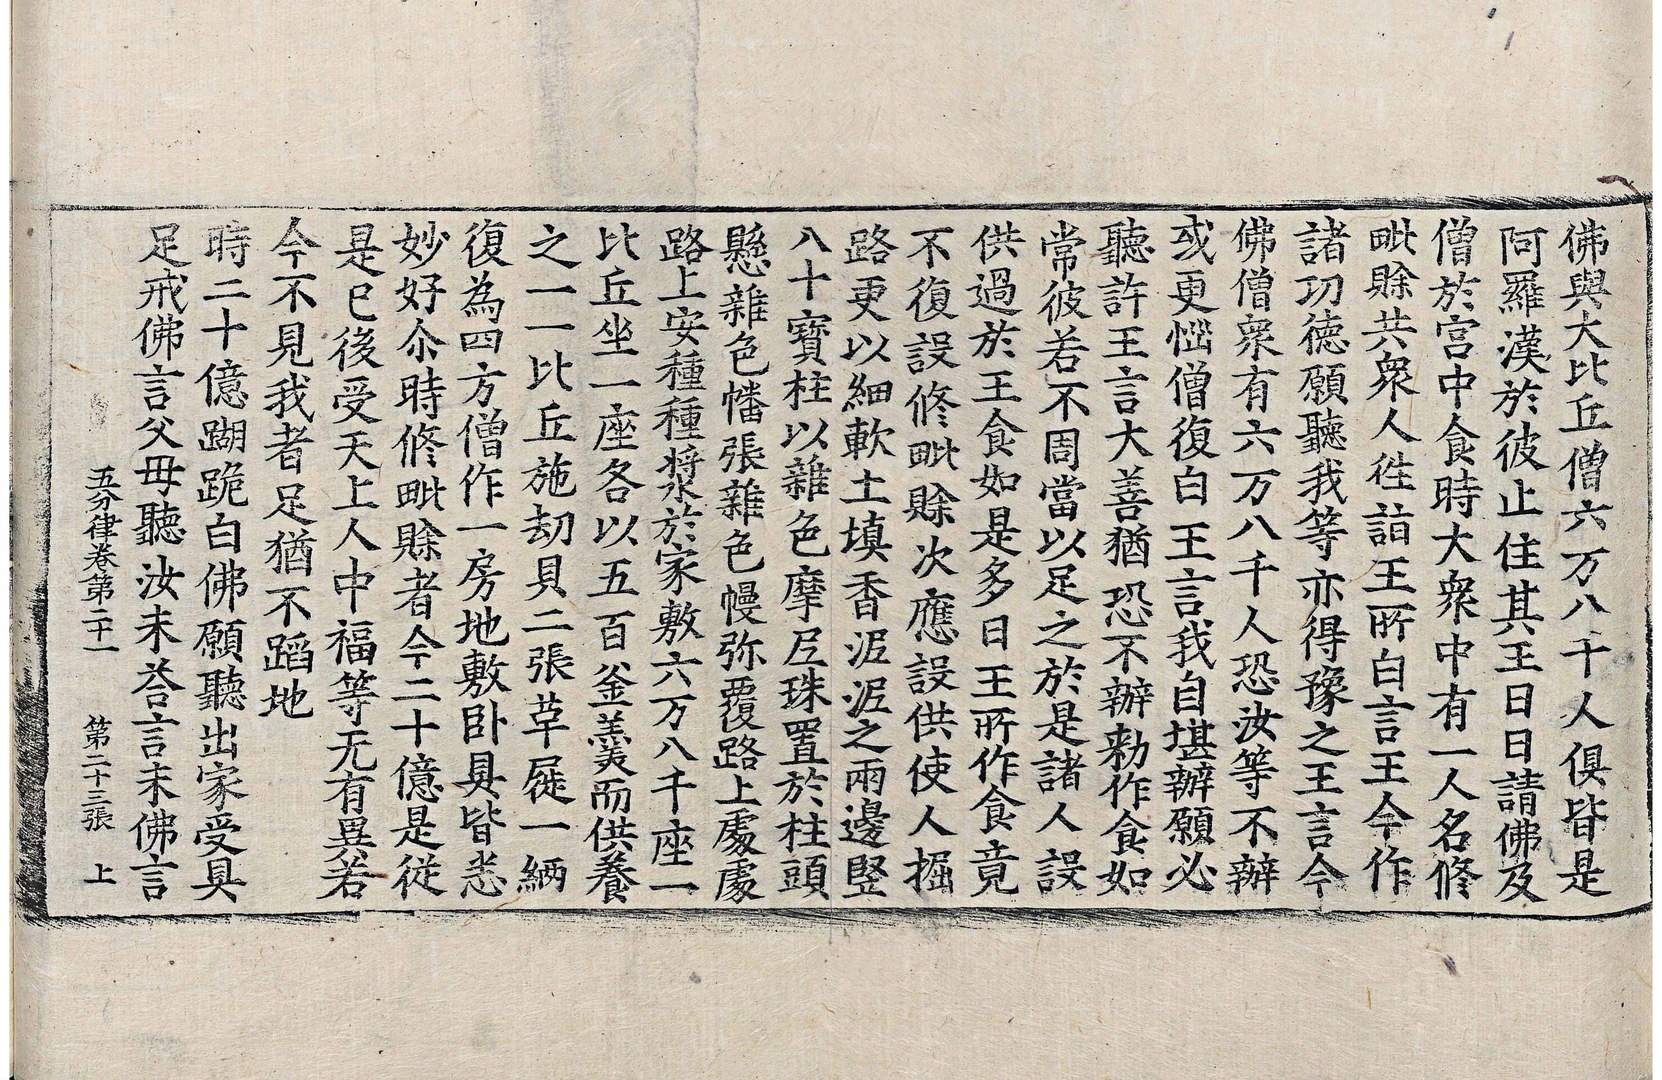 佛與大比丘僧六万八千人俱皆是
阿羅漢於彼止住其王日日請佛及
僧於宮中食時大衆中有一人名修
毗賒共衆人徃詣王所白言王今作
諸功德願聽我等亦得豫之王言今
佛僧衆有六万八千人恐汝等不辦
或更惱僧復白王言我自堪辦願必
聽許王言大善猶恐不辦勑作食如
常彼若不周當以足之於是諸人設
供過於王食如是多日王所作食竟
不復設修毗賒次應設供使人掘
路更以細軟土填香泥泥之兩邊竪
八十寶柱以雜色摩尼珠置於柱頭
懸雜色幡張雜色幔弥覆路上處處
路上安種種漿於家敷六万八千座一
比丘坐一座各以五百釜羹而供養
之一一比丘施刧貝二張草屣一緉
復為四方僧作一房地敷卧具皆悉
妙好尒時修毗賒者今二十億是從
是已後受天上人中福等无有異若
今不見我者足猶不蹈地
時二十億䠒跪白佛願聽出家受具
足戒佛言父母聽汝未荅言未佛言
五分律卷第二十一　第二十三張　上